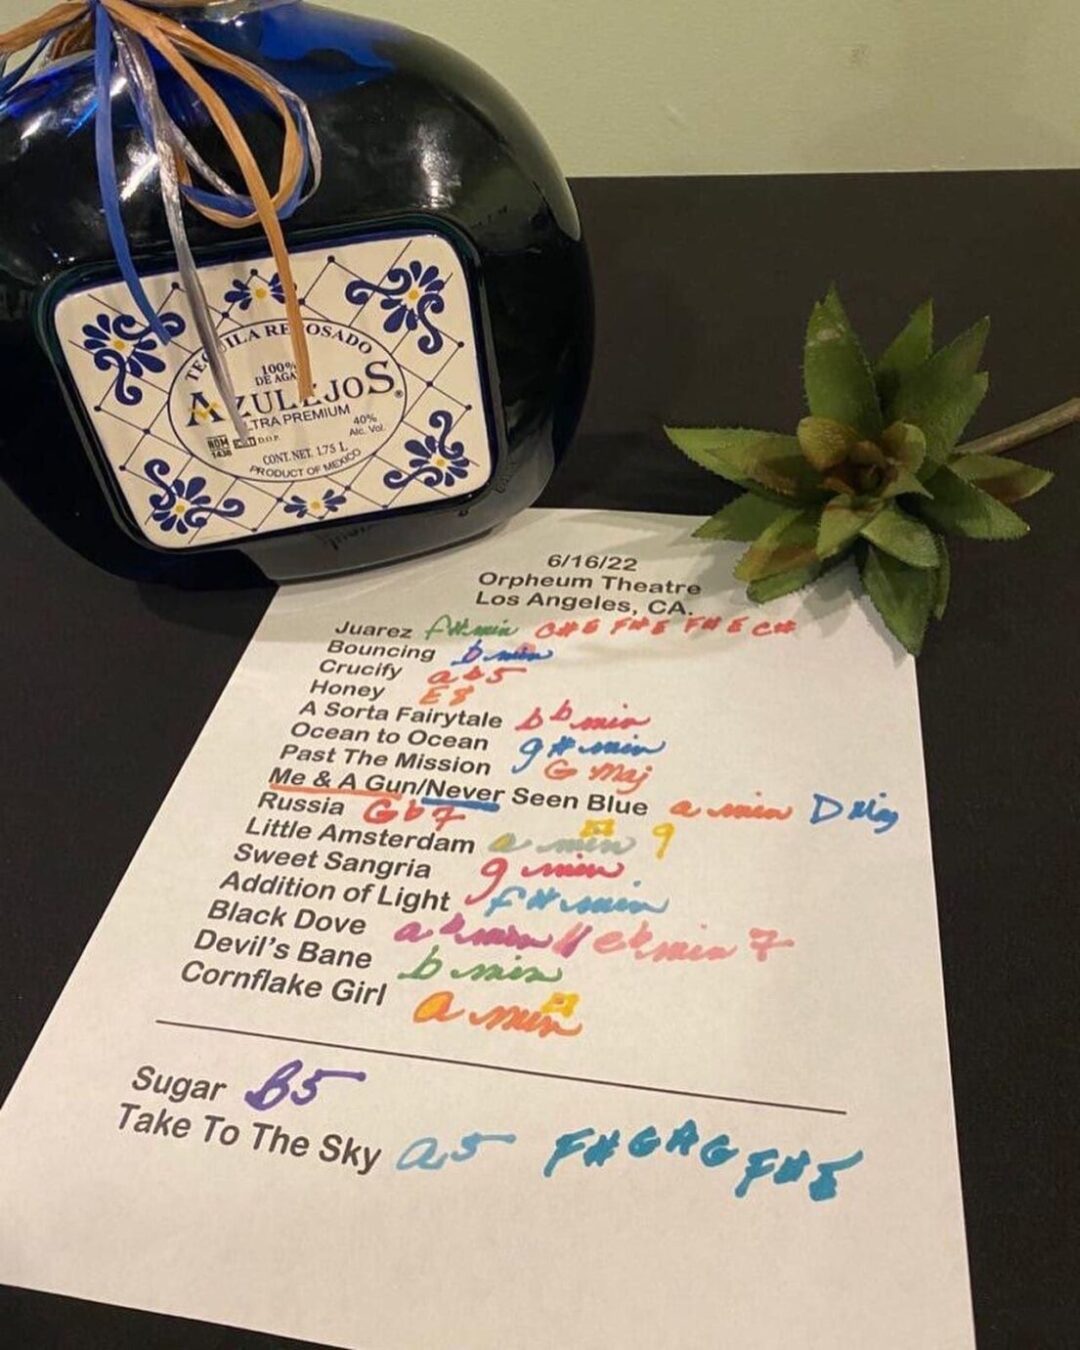 TEQUILA REPOSADO
100%
DE AGA
AZULEJOS®
ULTRA PREMIUM
40%
Alc. Vol.
NOM
1438
D.O.P.
CONT. NET. 1.75 L
PRODUCT OF MEXICO
6/16/22
Orpheum Theatre
Los Angeles, CA.
Juarez f#min C#E F#E F#E C#
Bouncing b min
Crucify ab5
Honey E8
A Sorta Fairytale bb min
Ocean to Ocean g#min
Past The Mission G Maj
Me & A Gun/Never Seen Blue a min D Maj
Russia Gb7
Little Amsterdam a min 9
Sweet Sangria g min
Addition of Light f#min
Black Dove ab min // eb min 7
Devil's Bane b min
Cornflake Girl a min
Sugar B5
Take To The Sky a5 F#GAG F#E